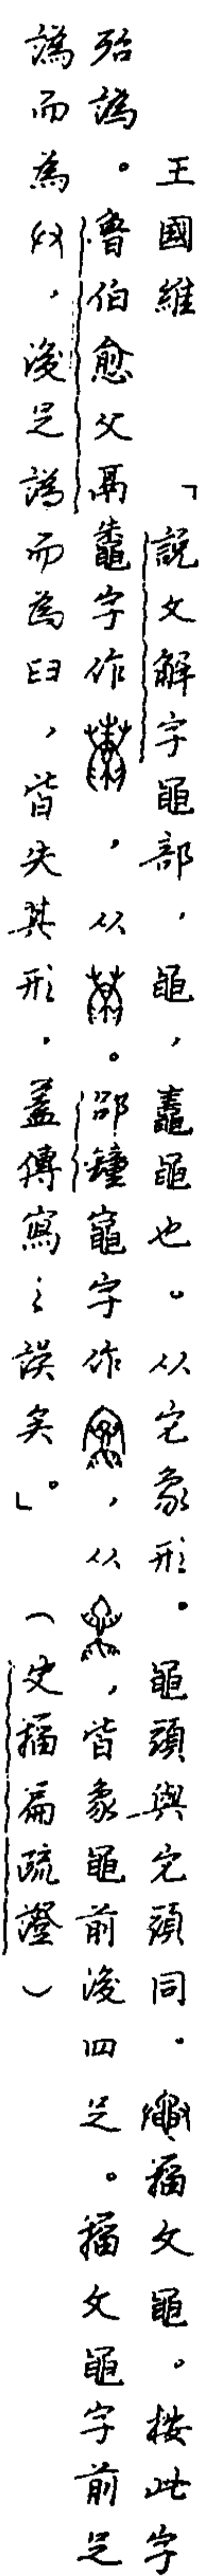 王國維 「說文解字黽部，黽，鼃黽也。从它象形。黽頭與它頭同。籀文黽。按此字
殆譌。魯伯愈父鬲鼄字作，从。邵鐘竈字作，从，皆象黽前後四足。籀文黽字前足
譌而為，後足譌而為𦥑，皆失其形。蓋傳寫之誤矣。」（史籀篇疏證）